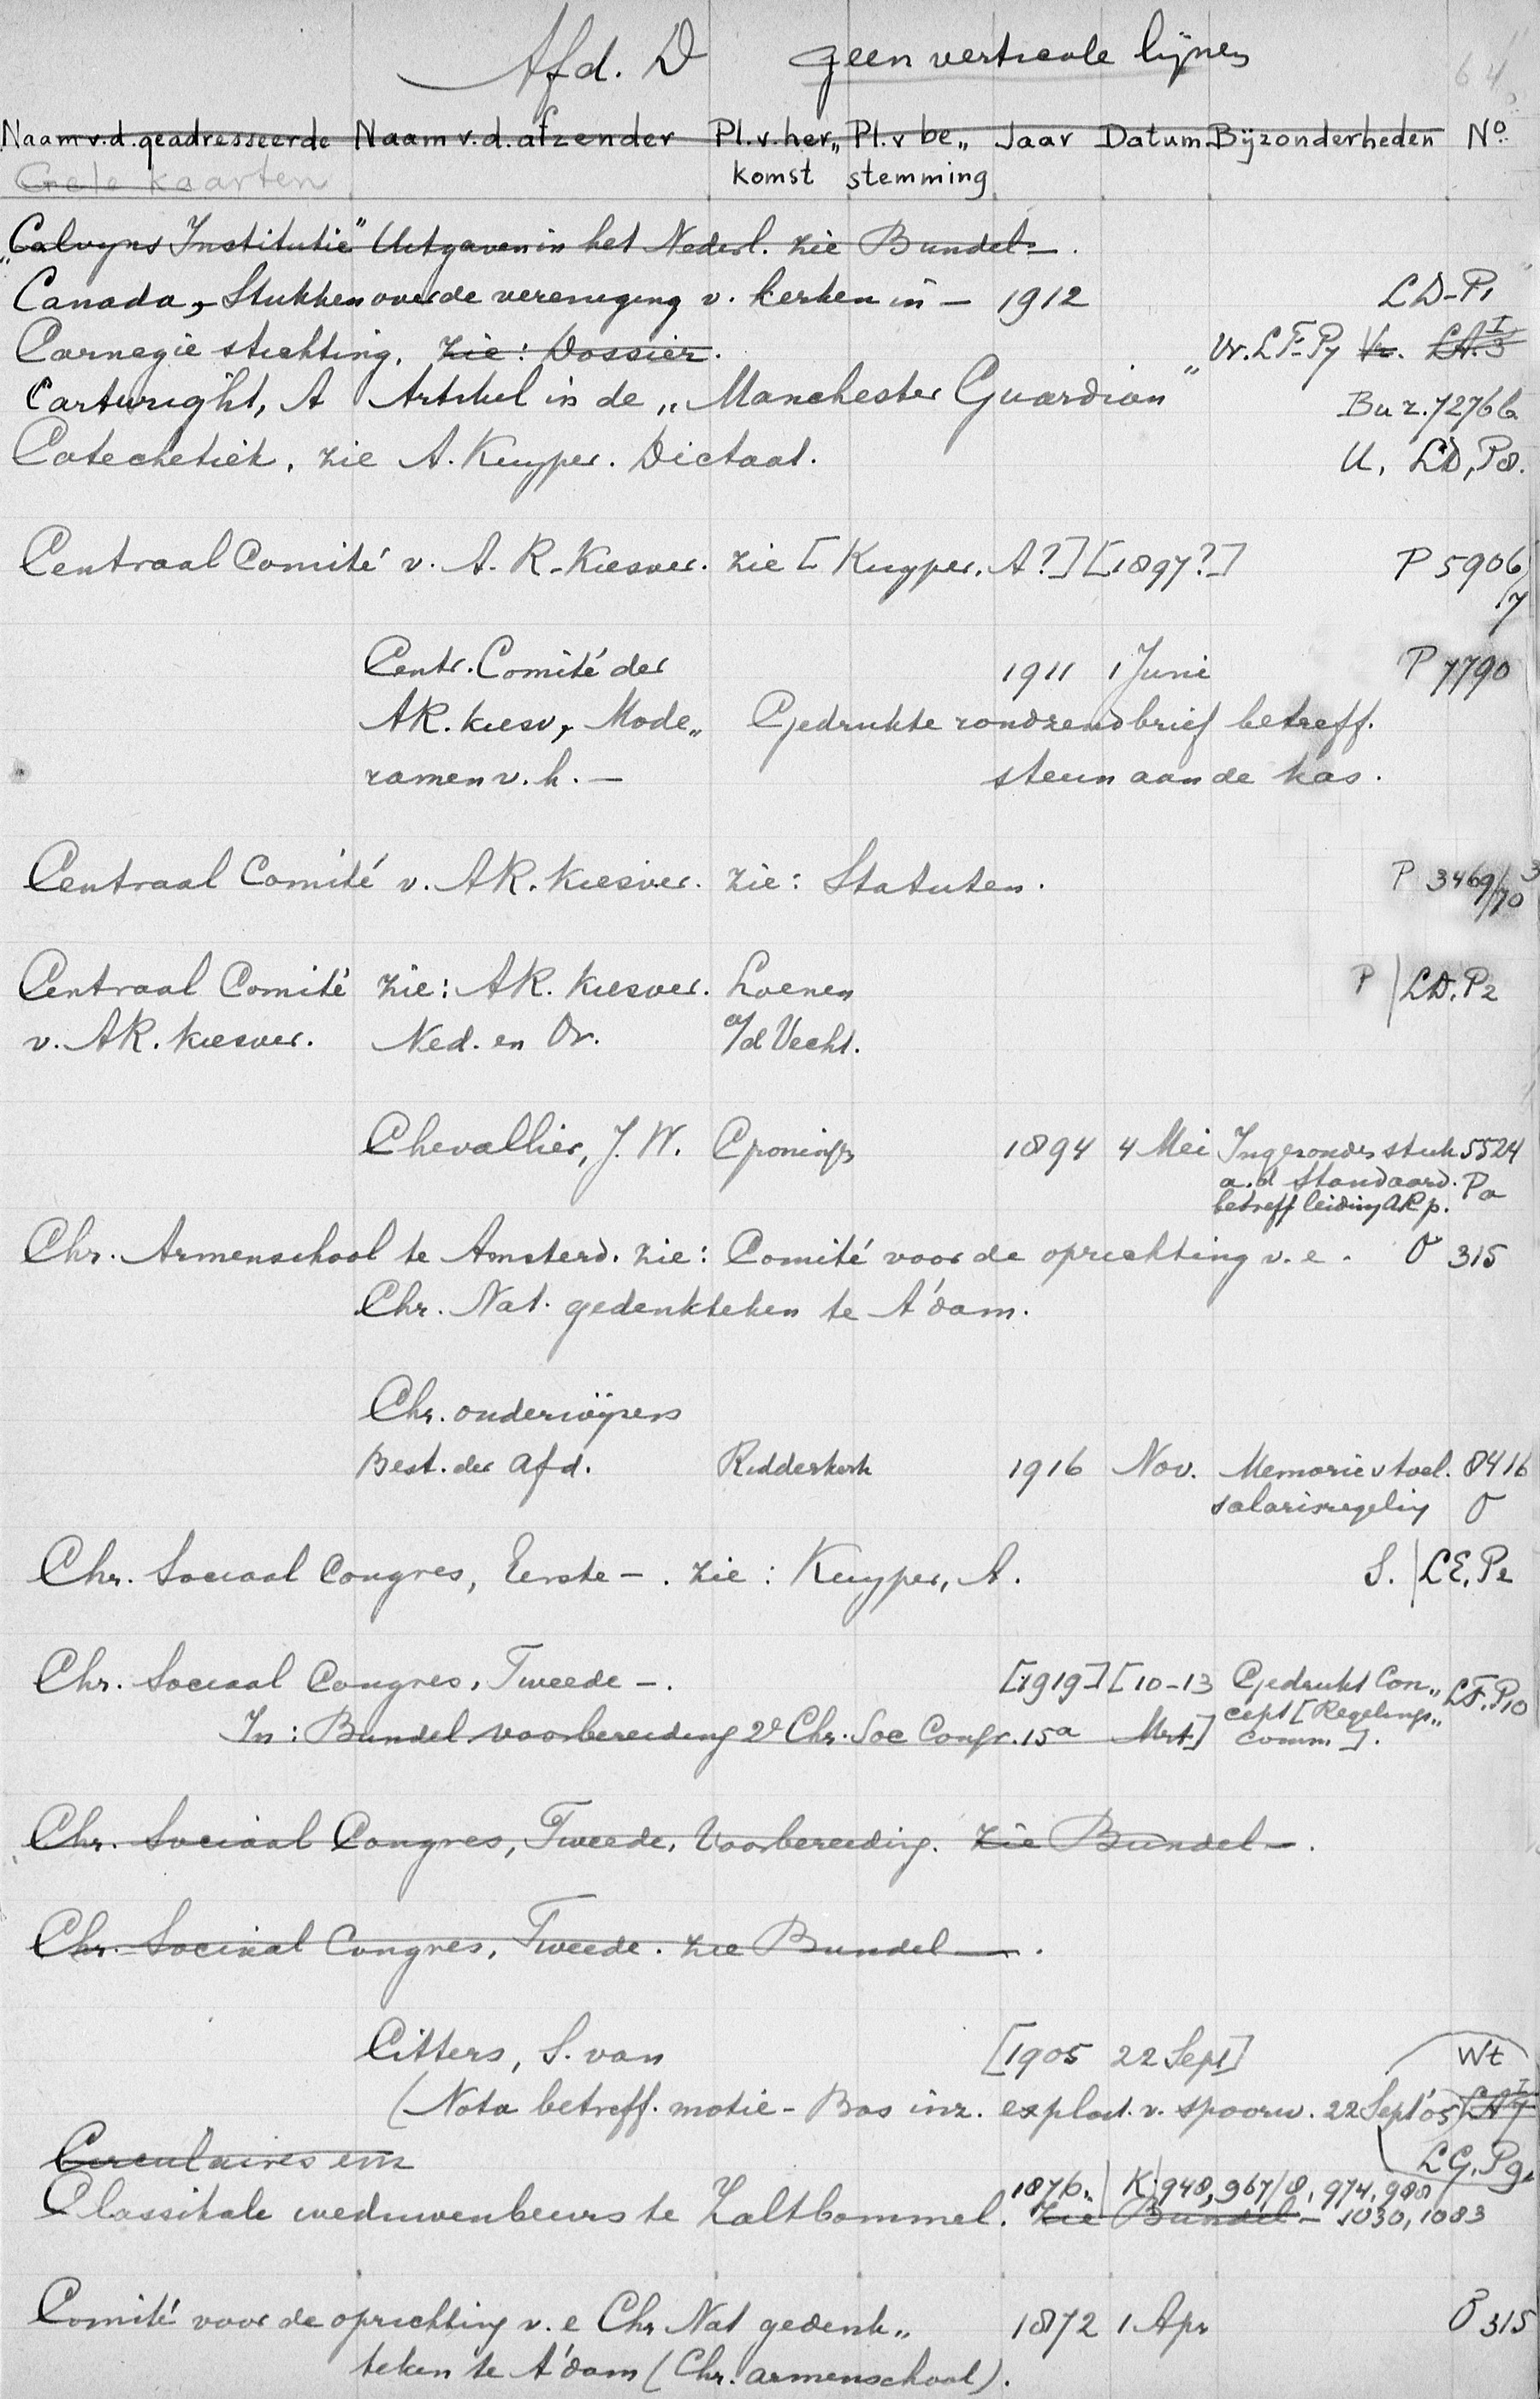 Afd. D geen verticale lijnen
64
Naam v.d. geadresseerde Naam v.d. afzender Pl. v. her„ Pl. v be„ Jaar Datum Bijzonderheden No.
Gele kaarten komst stemming
„Calvyns Institutie" Uitgaven in het Nederl. zie Bundel -.
Canada, Stukken over de vereniging v. kerken in - 1912 LD-P1
Carnegie stichting. zie: Dossier. Vr. LF-P7 Vr. LA.3 I
Cartwright, A Artikel in de „Manchester Guardian" Bu z. 7276b
Catechetiek, zie A. Kuyper. Dictaat. U, LD, P8.
Centraal Comité v. A.R. Kiesver. zie [Kuyper, A?] [1897?] P 5906/
7
Centr. Comité der 1911 1 Juni P 7790
AR. kiesv, Mode„ Gedrukte rondzendbrief betreff.
ramen v.h. - steun aan de kas.
Centraal Comité v. AR. Kiesver. zie: Statuten. P 3469/70 3
Centraal Comité zie: AR. kiesver. Loenen P | LD. P2
v. AR. kiesver. Ned. en Or. a/d Vecht.
Chevallier, J.W. Groningen 1894 4 Mei Ingezonden stuk 5524
a.d Standaard. Pa
betreff leiding ARp.
Chr. Armenschool te Amsterd. zie: Comité voor de oprichting v.e. O 315
Chr. Nat. gedenkteken te A'dam.
Chr. onderwijzers
Best. der afd. Ridderkerk 1916 Nov. Memorie v toel. 8416
salarisregeling O
Chr. Sociaal Congres, Eerste -. zie: Kuyper, A. S. | LE, P2
Chr. Sociaal Congres, Tweede -. [1919] [10-13 Gedrukt Con„ LF. P10
cept [Regelings„
In: Bundel voorbereiding 2e Chr. Soc Congr. 15a Mrt] comm].
Chr. Sociaal Congres, Tweede, Voorbereiding. zie Bundel -.
Chr. Sociaal Congres, Tweede. zie Bundel -.
Citters, S. van [1905 22 Sept] Wt
(Nota betreff. motie - Bos inz. exploit. v. spoorw. 22 Sept '05) LA7 I
Circulaires enz LG, P9
1876. | K 948, 967/8, 974, 988
Classikale weduwenbeurs te Zaltbommel. Zie Bundel - 1030, 1083
Comité voor de oprichting v.e Chr Nat gedenk„ 1872 1 Apr O 315
teken te A'dam (Chr. armenschool).